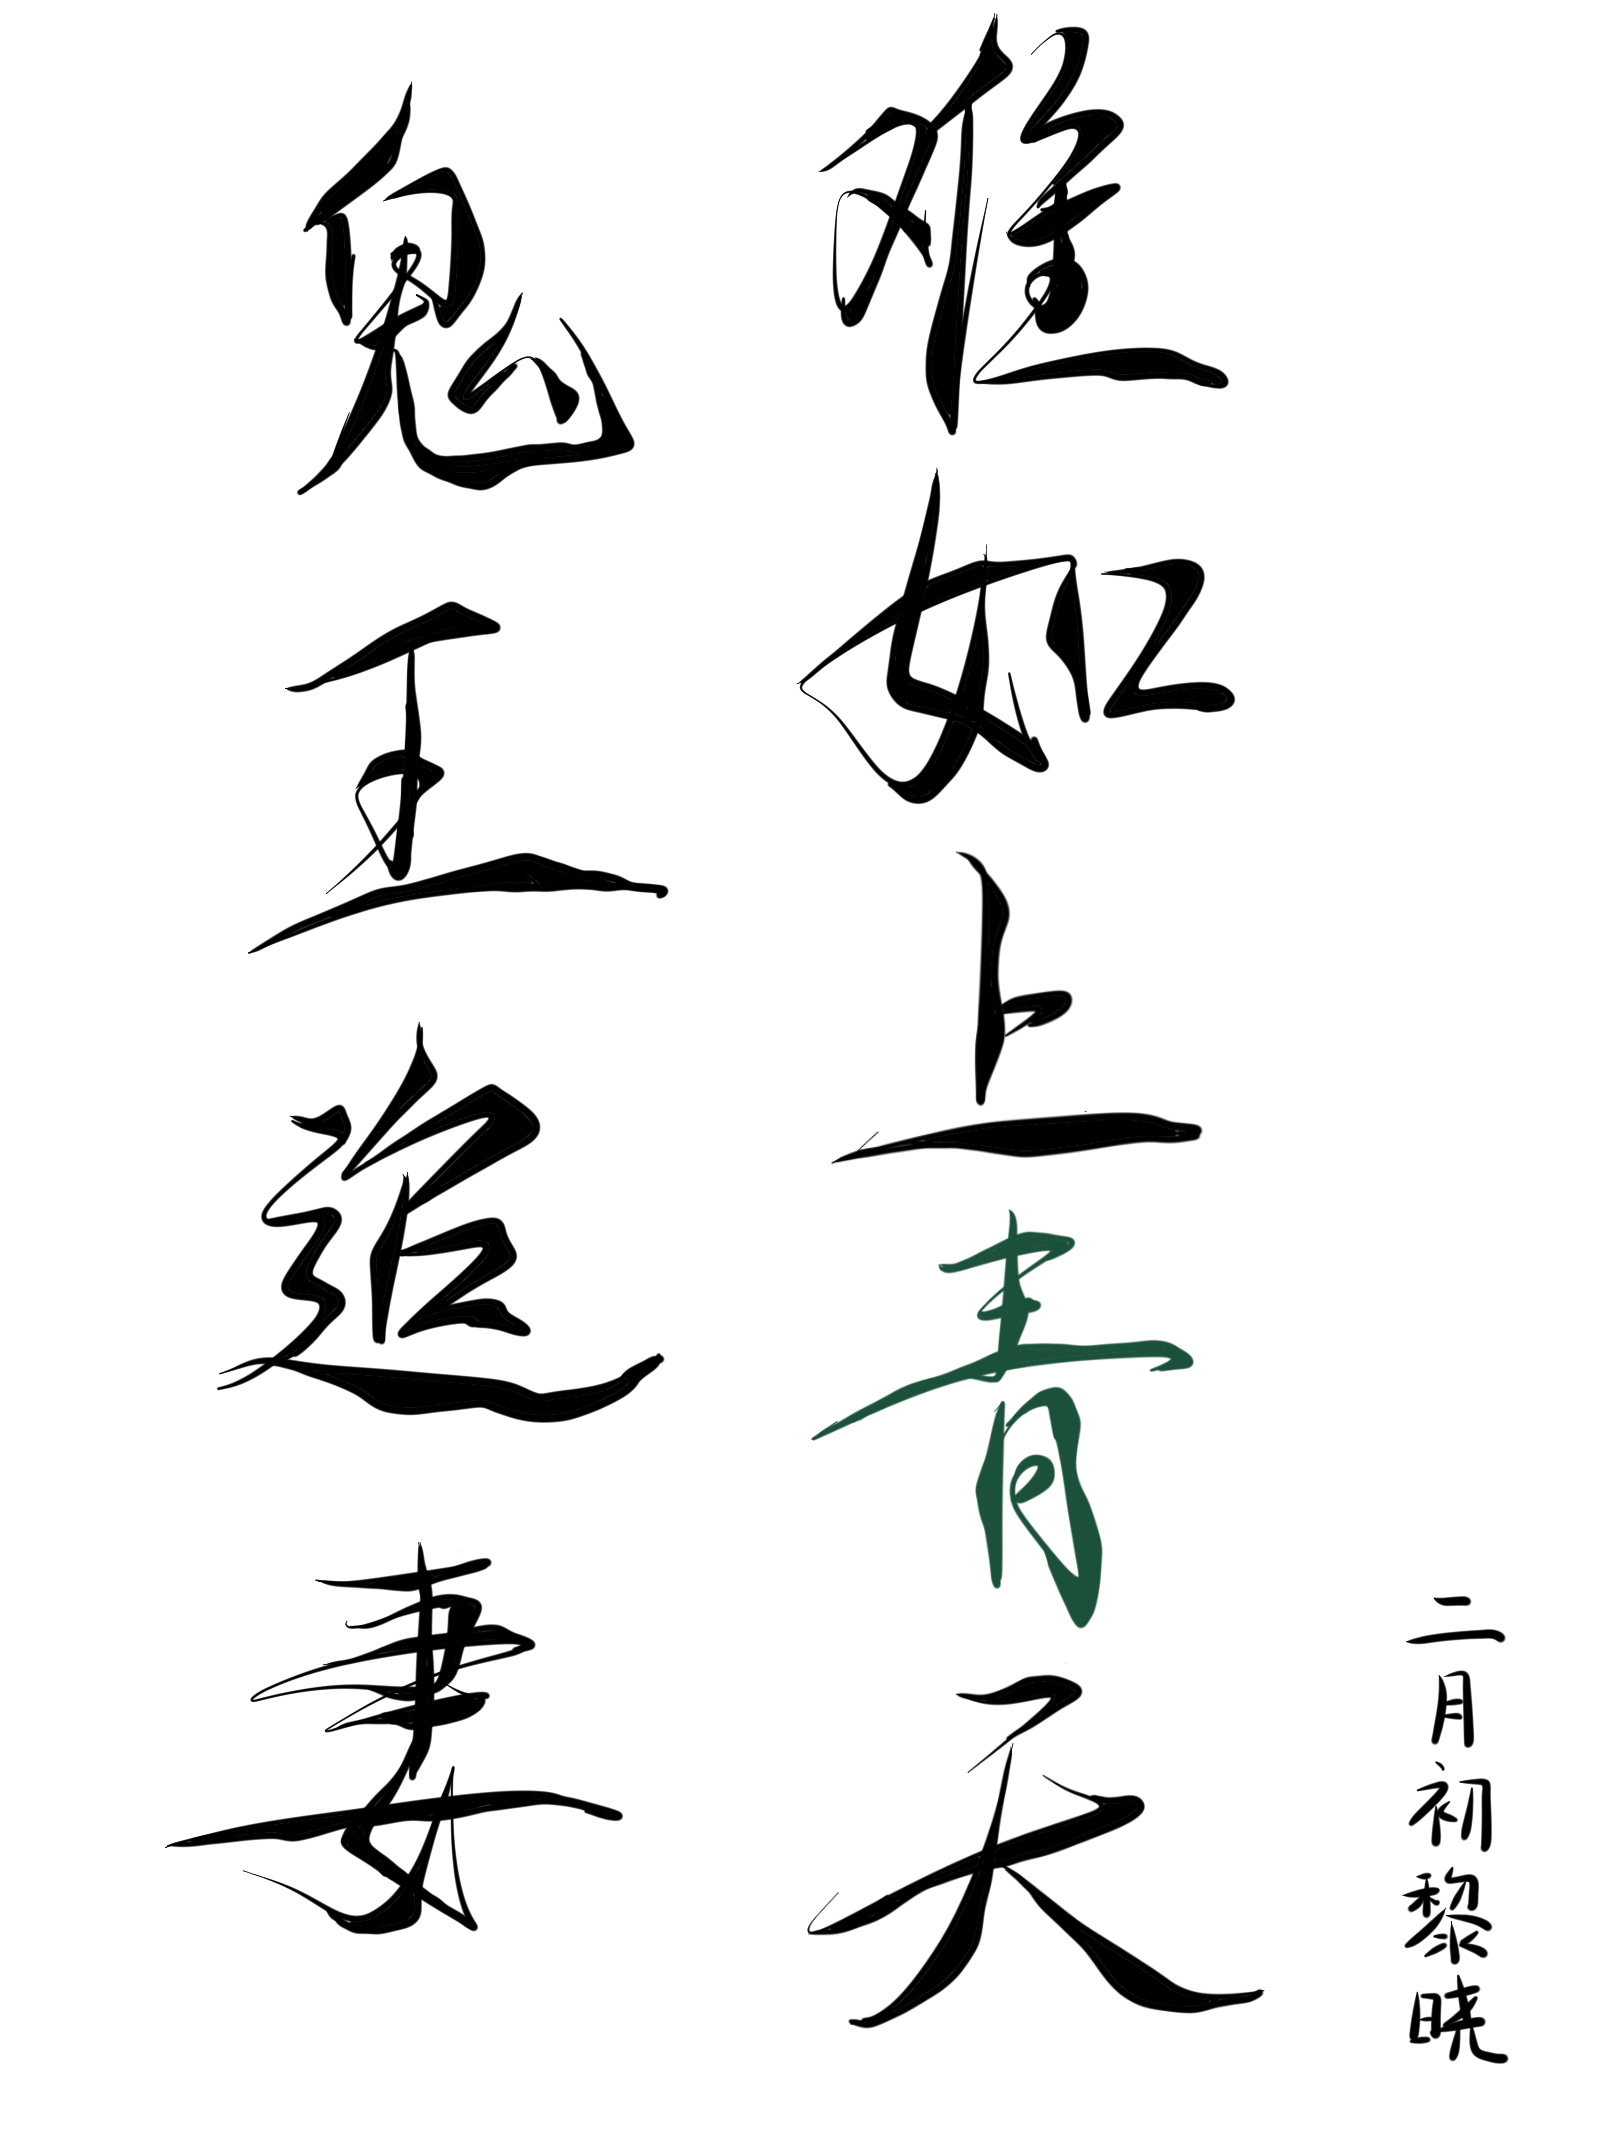 二月初黎晓
难如上青天
鬼王追妻